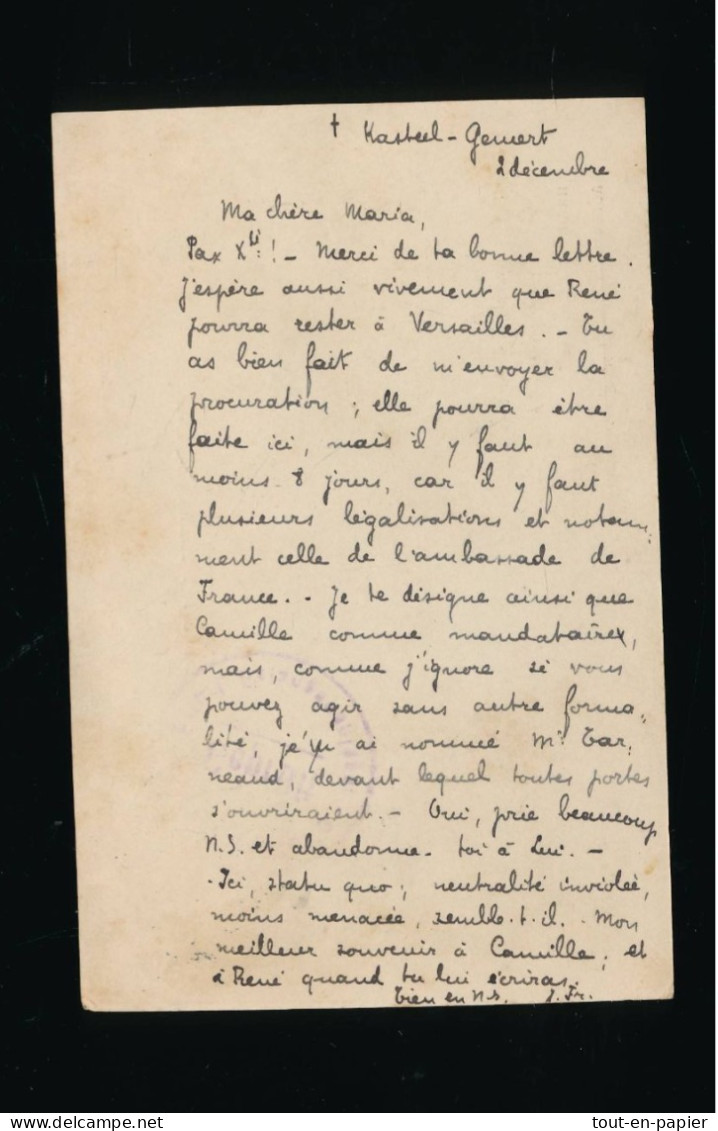 † Kasteel-Gemert
2 décembre
Ma chère Maria,
Pax Xti! - Merci de ta bonne lettre.
J'espère aussi vivement que René
pourra rester à Versailles. - Tu
as bien fait de m'envoyer la
procuration; elle pourra être
faite ici, mais il y faut au
moins 8 jours, car il y faut
plusieurs légalisations et notam-
ment celle de l'ambassade de
France. - Je te désigne ainsi que
Camille comme mandataire,
mais, comme j'ignore si vous
pouvez agir sans autre forma-
lité, j'y ai nommé Mr Tar-
neaud, devant lequel toutes portes
s'ouvriraient. - Oui, prie beaucoup
N.S. et abandonne-toi à Lui. -
- Ici, statu quo; neutralité inviolée,
moins menacée, semble-t-il. - Mon
meilleur souvenir à Camille; et
à René quand tu lui écriras.
Tien en N.S. J. Fr.
tout-en-papier